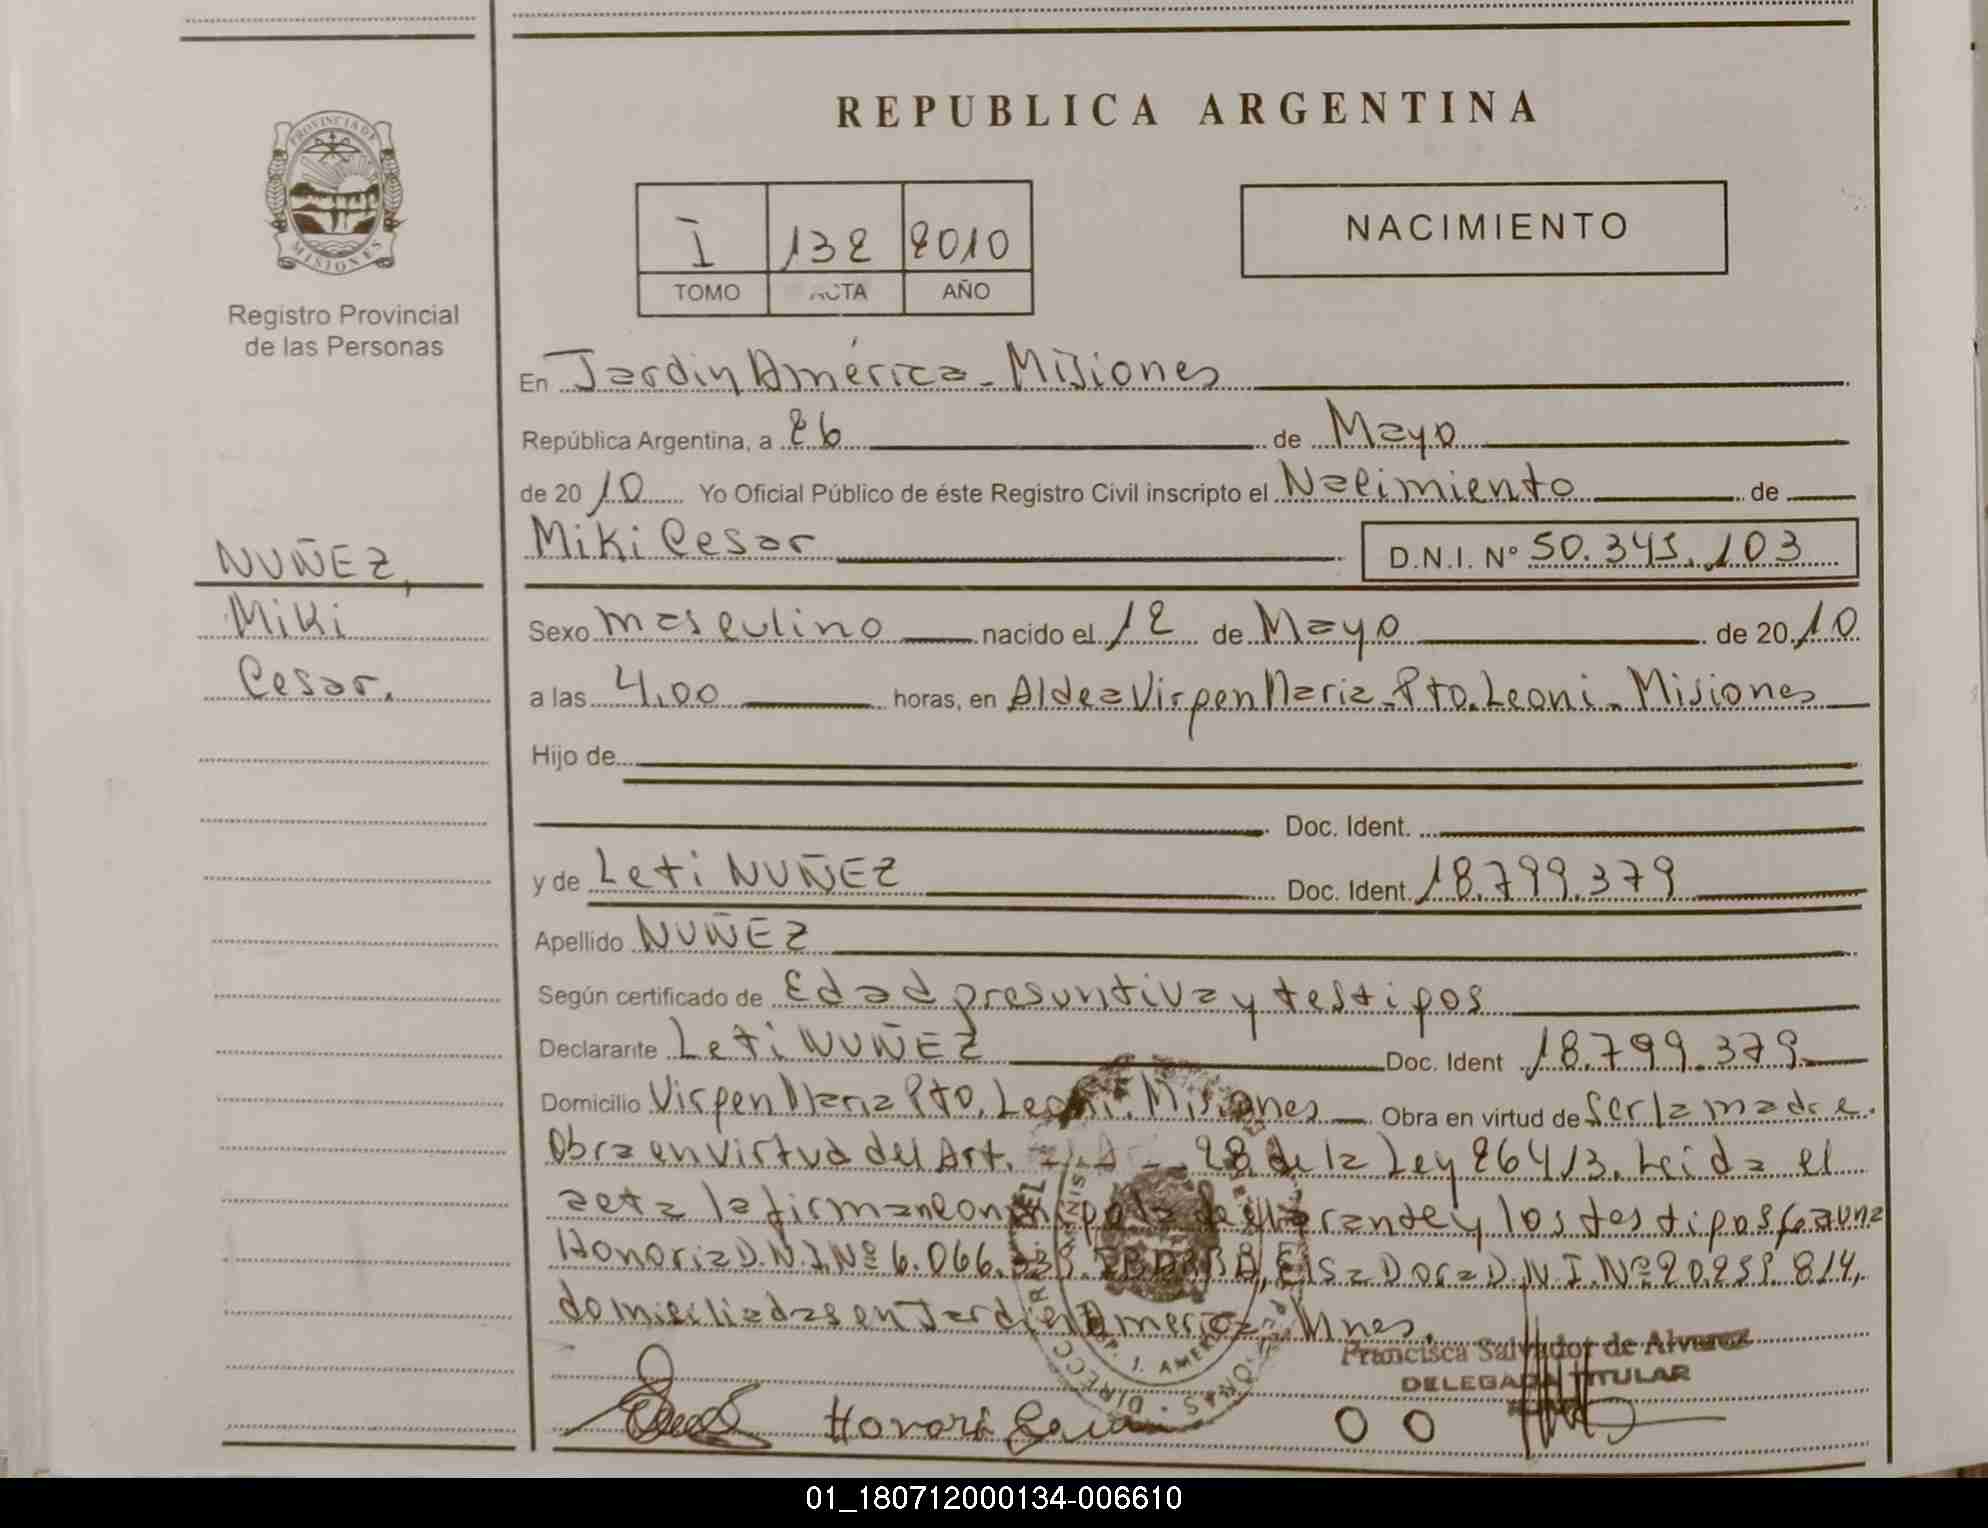 REPUBLICA ARGENTINA
PROVINCIA DE
MISIONES
Registro Provincial
de las Personas
I 132 2010
TOMO ACTA AÑO
NACIMIENTO
En Jardin América - Misiones
República Argentina, a 26 de Mayo
de 2010 Yo Oficial Público de éste Registro Civil inscripto el Nacimiento de
Miki Cesar D.N.I. Nº 50.345.103
NUÑEZ,
Miki
Cesar.
Sexo masculino nacido el 12 de Mayo de 2010
a las 4.00 horas, en Aldea Virgen Maria - Pto. Leoni - Misiones
Hijo de
Doc. Ident.
y de Leti NUÑEZ Doc. Ident. 18.799.379
Apellido NUÑEZ
Según certificado de Edad presuntiva y testigos
Declarante Leti NUÑEZ Doc. Ident 18.799.379
Domicilio Virgen Maria Pto. Leoni. Misiones Obra en virtud de Ser la madre.
Obra en virtud del Art. 28 de la Ley 26413. Leida el
acta la firman conmigo la declarante y los testigos Gauna
Honoria D.N.I. Nº 6.066. Elsa Dora D.N.I. Nº 20.259.814,
domiciliadas en Jardin America Mnes.
Francisca Salvador de Alvarez
DELEGADA TITULAR
Honori Gauna
01_180712000134-006610